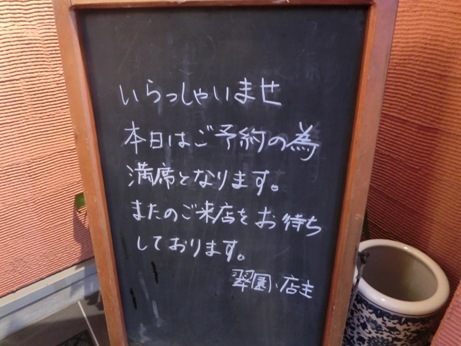 いらっしゃいませ
本日はご予約の為
満席となります。
またのご来店をお待ち
しております。
翠園・店主